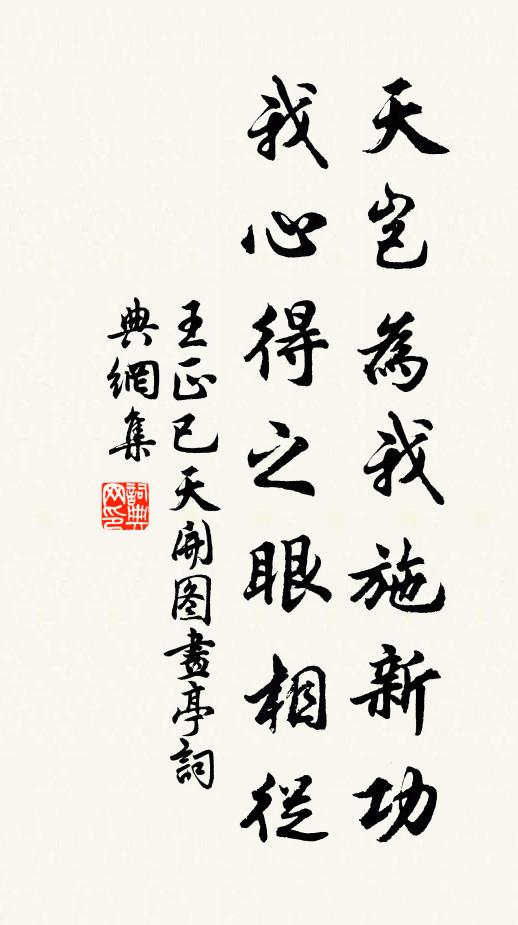 天岂為我施新功
我心得之眼相從
王正己天開图畫亭詞
典網集
詞典网印